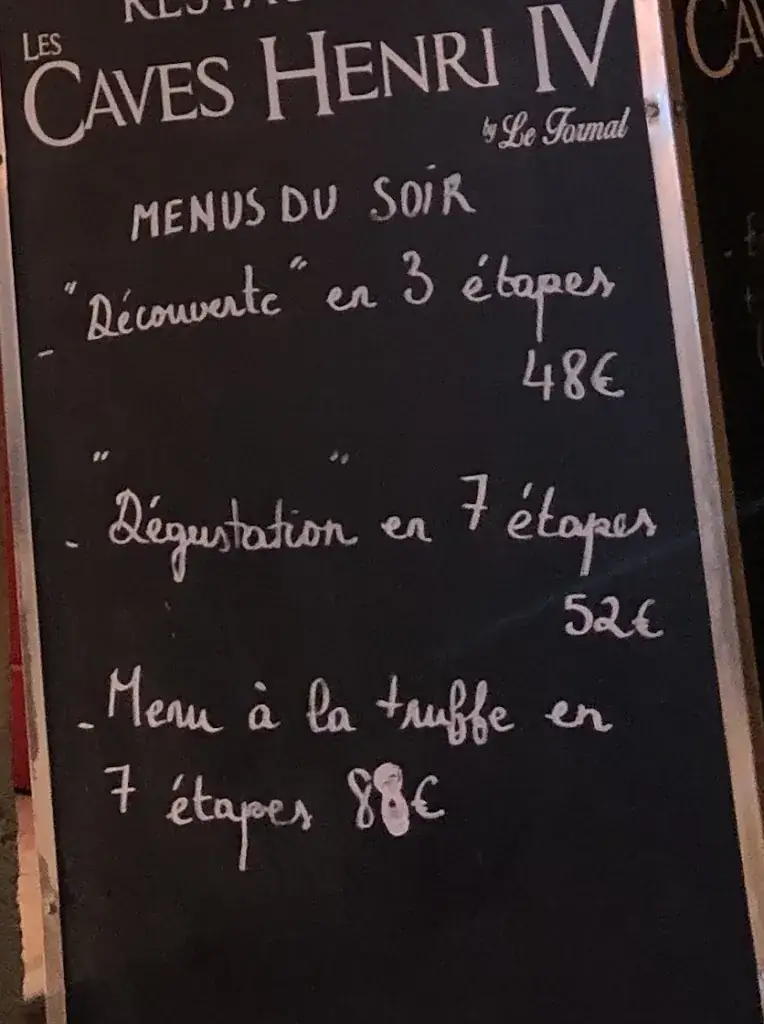 LES
CAVES HENRI IV
by Le Formal
MENUS DU SOIR
- "Découverte" en 3 étapes
48€
- "Dégustation" en 7 étapes
52€
- Menu à la truffe en
7 étapes 88€